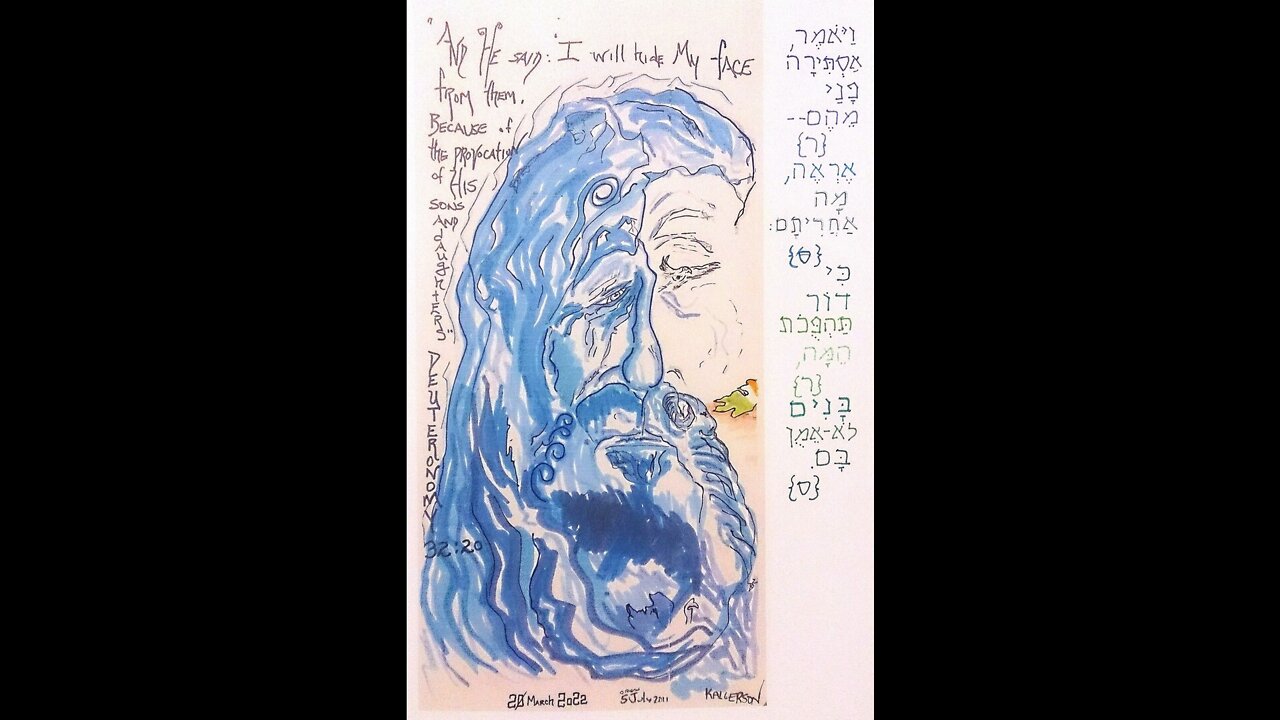 "AND HE SAID: 'I will hide My fACE
from them.
BECAUSE of
the PROVOCATION
of HIS
SONS
AND
daughTERS"
DEUTERONOMY
32:20
וַיֹּאמֶר,
אַסְתִּירָה
פָנַי
מֵהֶם--
{ר}
אֶרְאֶה,
מָה
אַחֲרִיתָם:
{ס}
כִּי
דוֹר
תַּהְפֻּכֹת
הֵמָּה,
{ר}
בָּנִים
לֹא-אֵמֻן
בָּם.
{ס}
20 MARCH 2022
5 July 2011
KALLERSON